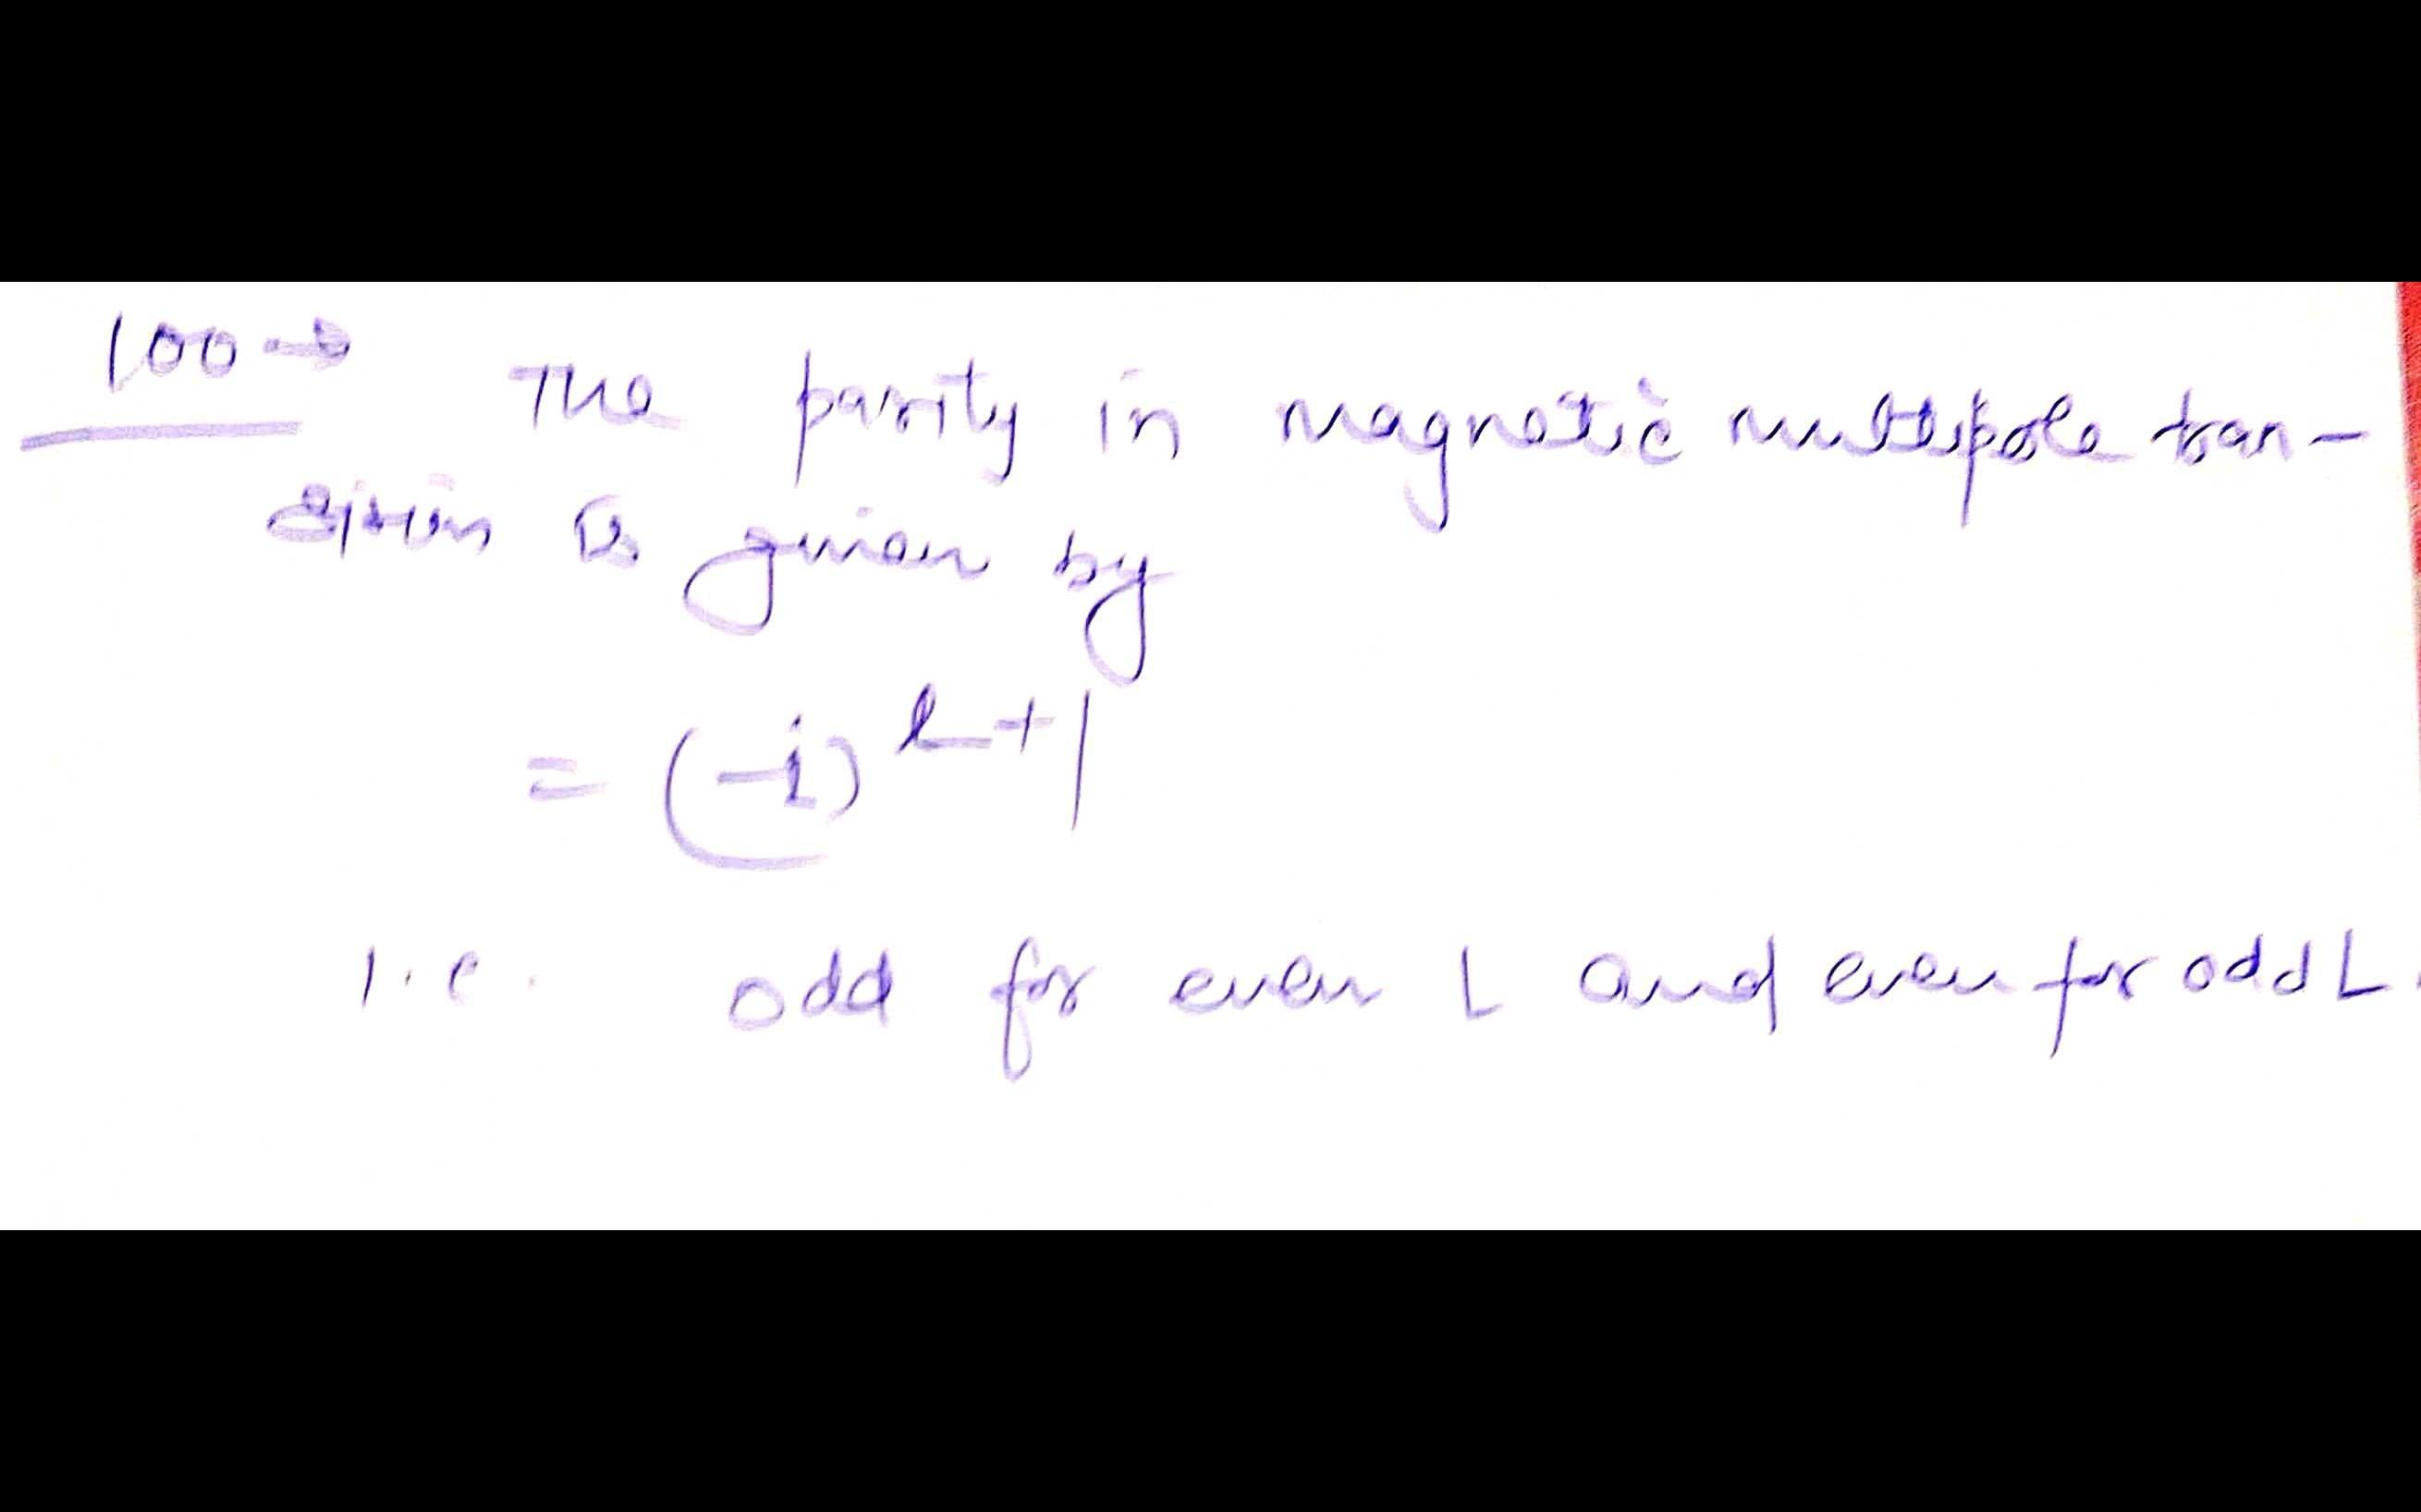 100→ The parity in magnetic multipole tran-
sition is given by
= (-1)^{L+1}
i.e. odd for even L and even for odd L.